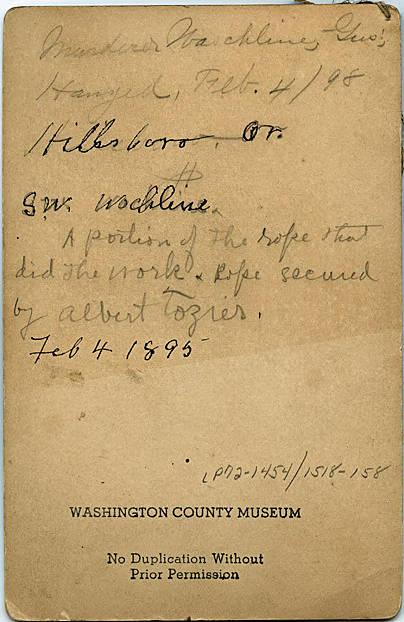 Murderer Waechline, Gus,
Hanged, Feb. 4/98
Hillsboro, Or.
G.W. Wachline.
A portion of the rope that
did the work. Rope secured
by Albert Tozier.
Feb 4 1895
LP72-1454/1518-158
WASHINGTON COUNTY MUSEUM
No Duplication Without
Prior Permission